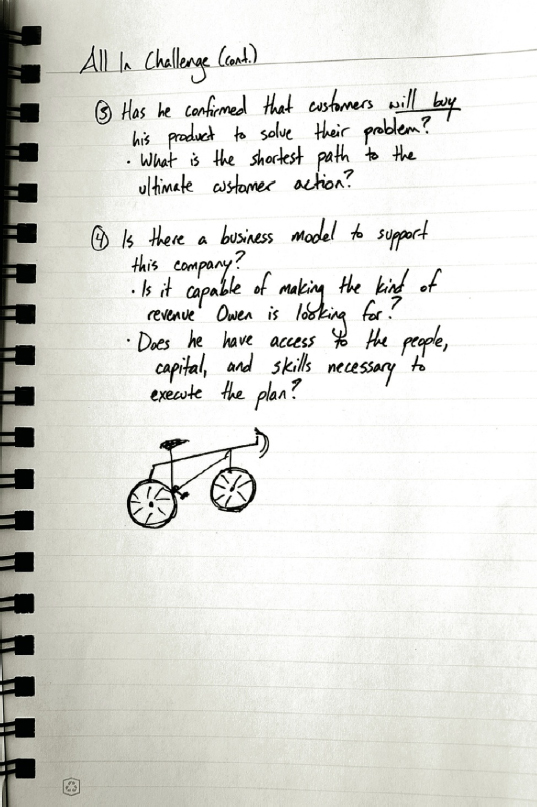 All In Challenge (cont.)
③ Has he confirmed that customers will buy
his product to solve their problem?
· What is the shortest path to the
ultimate customer action?
④ Is there a business model to support
this company?
· Is it capable of making the kind of
revenue Owen is looking for?
· Does he have access to the people,
capital, and skills necessary to
execute the plan?